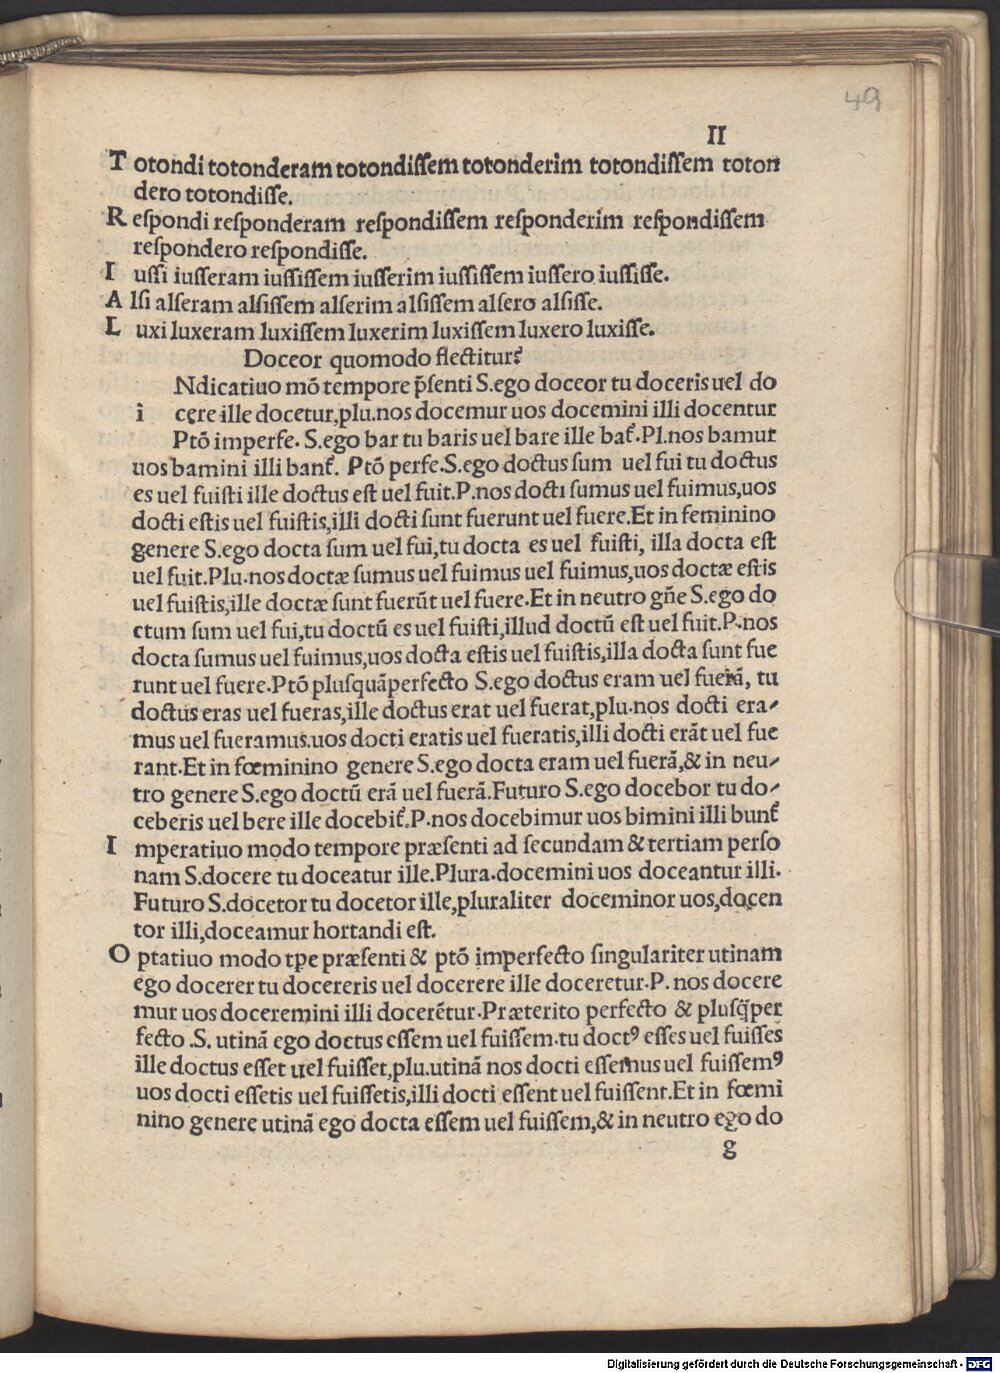 49
II
T otondi totonderam totondiſſem totonderim totondiſſem toton
dero totondiſſe.
R eſpondi reſponderam reſpondiſſem reſponderim reſpondiſſem
reſpondero reſpondiſſe.
I uſſi iuſſeram iuſſiſſem iuſſerim iuſſiſſem iuſſero iuſſiſſe.
A lſi alſeram alſiſſem alſerim alſiſſem alſero alſiſſe.
L uxi luxeram luxiſſem luxerim luxiſſem luxero luxiſſe.
Doceor quomodo flectitur?
Ndicatiuo mõ tempore p̃ſenti S.ego doceor tu doceris uel do
i cere ille docetur,plu.nos docemur uos docemini illi docentur
Ptõ imperfe. S.ego bar tu baris uel bare ille bat̃.Pl.nos bamur
uos bamini illi bant̃. Ptõ perfe.S.ego doctus ſum uel fui tu doctus
es uel fuiſti ille doctus eſt uel fuit.P.nos docti ſumus uel fuimus,uos
docti eſtis uel fuiſtis,illi docti ſunt fuerunt uel fuere.Et in feminino
genere S.ego docta ſum uel fui,tu docta es uel fuiſti, illa docta eſt
uel fuit.Plu.nos doctæ ſumus uel fuimus uel fuimus,uos doctæ eſtis
uel fuiſtis,ille doctæ ſunt fuerũt uel fuere.Et in neutro gñe S.ego do
ctum ſum uel fui,tu doctũ es uel fuiſti,illud doctũ eſt uel fuit.P.nos
docta ſumus uel fuimus,uos docta eſtis uel fuiſtis,illa docta ſunt fue
runt uel fuere.Ptõ pluſquãperfecto S.ego doctus eram uel fuerã, tu
doctus eras uel fueras,ille doctus erat uel fuerat,plu.nos docti era-
mus uel fueramus.uos docti eratis uel fueratis,illi docti erãt uel fue
rant.Et in fœminino genere S.ego docta eram uel fuerã,& in neu-
tro genere S.ego doctũ erã uel fuerã.Futuro S.ego docebor tu do-
ceberis uel bere ille docebit̃.P.nos docebimur uos bimini illi bunt̃
I mperatiuo modo tempore præſenti ad ſecundam & tertiam perſo
nam S.docere tu doceatur ille.Plura.docemini uos doceantur illi.
Futuro S.docetor tu docetor ille,pluraliter doceminor uos,docen
tor illi,doceamur hortandi eſt.
O ptatiuo modo tpe præſenti & ptõ imperfecto ſingulariter utinam
ego docerer tu docereris uel docerere ille doceretur.P. nos docere
mur uos doceremini illi docerẽtur.Præterito perfecto & pluſq̃per
fecto .S. utinã ego doctus eſſem uel fuiſſem.tu doctꝰ eſſes uel fuiſſes
ille doctus eſſet uel fuiſſet,plu.utinã nos docti eſſemus uel fuiſſemꝰ
uos docti eſſetis uel fuiſſetis,illi docti eſſent uel fuiſſent.Et in fœmi
nino genere utinã ego docta eſſem uel fuiſſem,& in neutro ego do
g
Digitalisierung gefördert durch die Deutsche Forschungsgemeinschaft - DFG